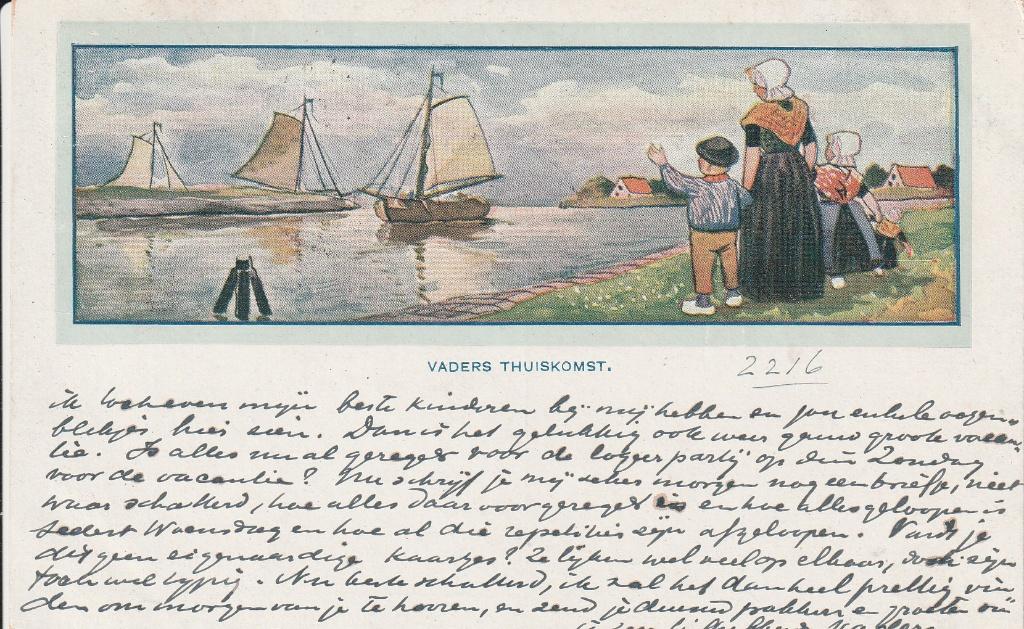 VADERS THUISKOMST.
2216
ik toch even mijn beste kinderen bij mij hebben en jou enkele oogen-
blikjes hier zien. Dan is het gelukkig ook weer gauw groote vacan-
tie. Is alles nu al geregeld voor de logeerpartij op dien Zondag
voor de vacantie? Nu schrijf je mij zeker morgen nog een briefje, niet
waar schatterd, hoe alles daarvoor geregeld is en hoe alles geloopen is
sedert Woensdag en hoe al die repetities zijn afgeloopen. Vindt je
dit geen eigenaardige kaartjes? Ze lijken wel veel op elkaar, doch zijn
toch wel typig. Nu beste schatterd, ik zal het dan heel prettig vin-
den om morgen van je te hooren, en zend je duizend pakkers en groeten van
je